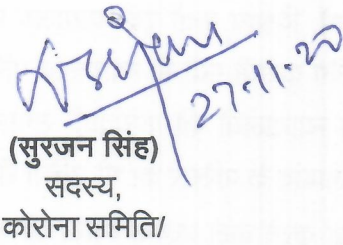 27-11-20
(सुरजन सिंह)
सदस्य,
कोरोना समिति/